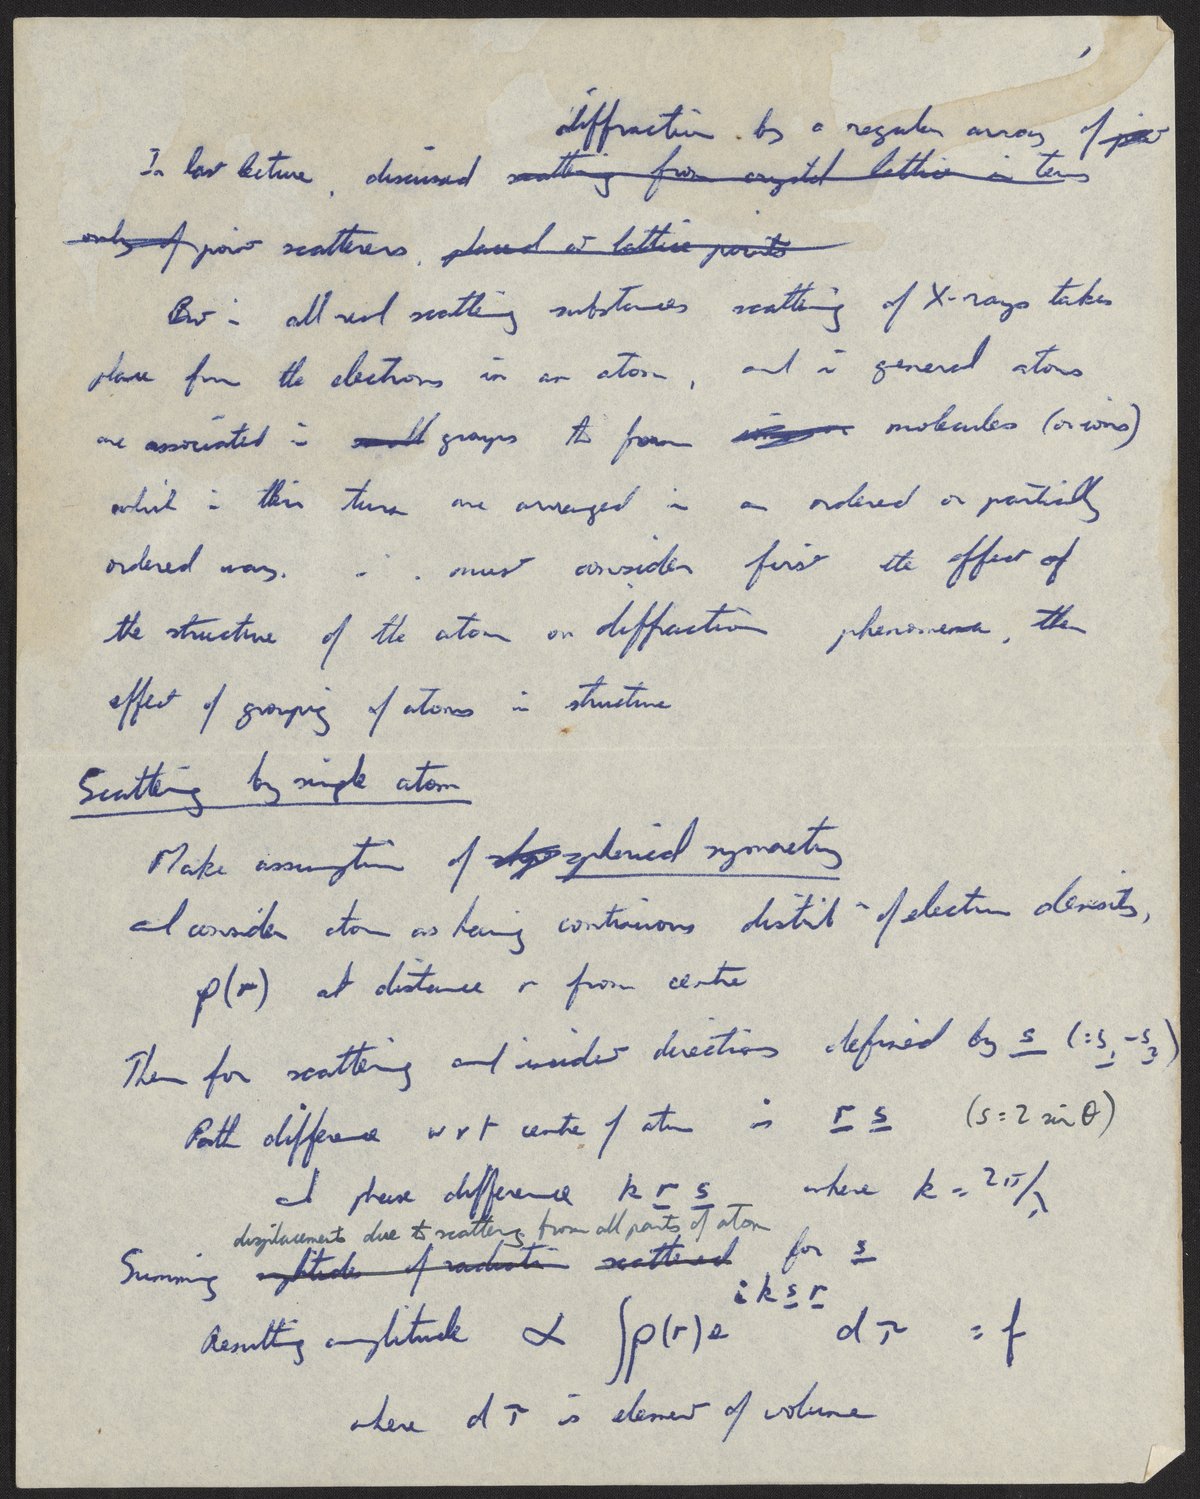 diffraction by a regular array of
In last lecture, discussed scattering from crystal lattice in terms
only of point scatterers, placed at lattice points
But in all real scattering substances scattering of X-rays takes
place from the electrons in an atom, and in general atoms
are associated in small groups to form molecules (or ions)
which in their turn are arranged in an ordered or partially
ordered way. ∴ must consider first the effect of
the structure of the atom on diffraction phenomena, then
effect of grouping of atoms in structure
Scattering by single atom
Make assumption of spherical symmetry
and consider atom as having continuous distribⁿ of electron density,
ρ(r) at distance r from centre
Then for scattering and incident directions defined by s (= s₁ - s₂)
Path difference w r t centre of atom is r s (s = 2 sin θ)
and phase difference k r s where k = 2π/λ
displacements due to scattering from all parts of atom
Summing amplitudes of radiation scattered for s
Resulting amplitude ∝ ∫ρ(r) e^{i k s r} dτ = f
where dτ is element of volume